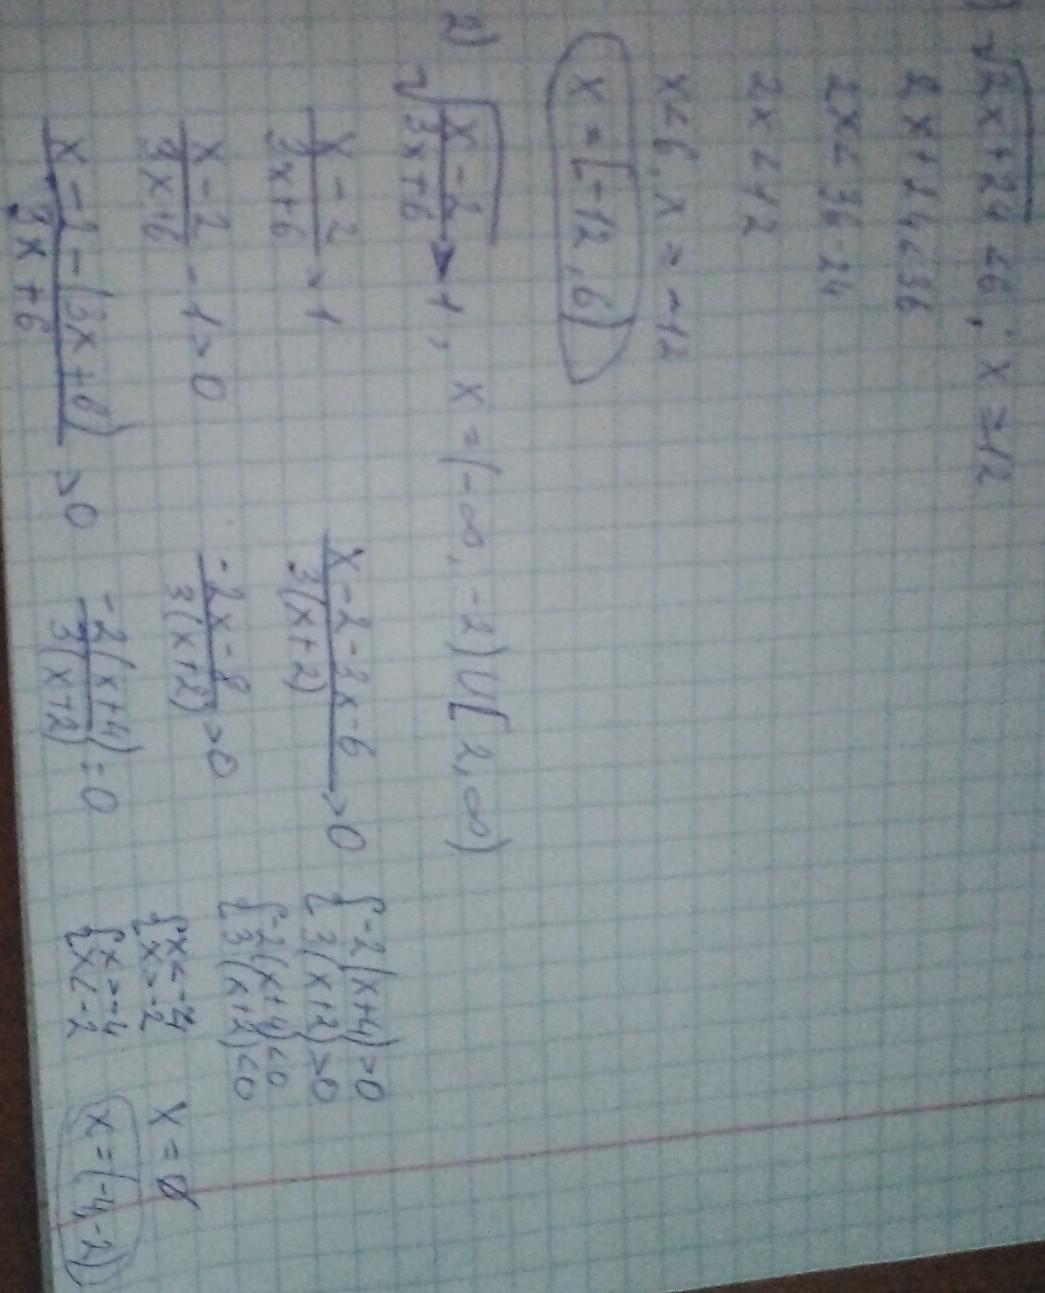 √2x+24 <6, x ≥-12
2x+24<36
2x<36-24
2x<12
x<6, x ≥ -12
x = [-12, 6)
2) √x-2/3x+6 > 1, x = (-∞, -2) U [2, ∞)
x-2/3x+6 > 1
x-2/3x+6 - 1 > 0
x-2-(3x+6)/3x+6 > 0
x-2-3x-6/3(x+2) > 0
-2x-8/3(x+2) > 0
-2(x+4)/3(x+2) = 0
{-2(x+4)>0
{3(x+2)>0
{-2(x+4)<0
{3(x+2)<0
{x<-4
{x>-2 x = ∅
{x>-4
{x<-2 x = (-4,-2)